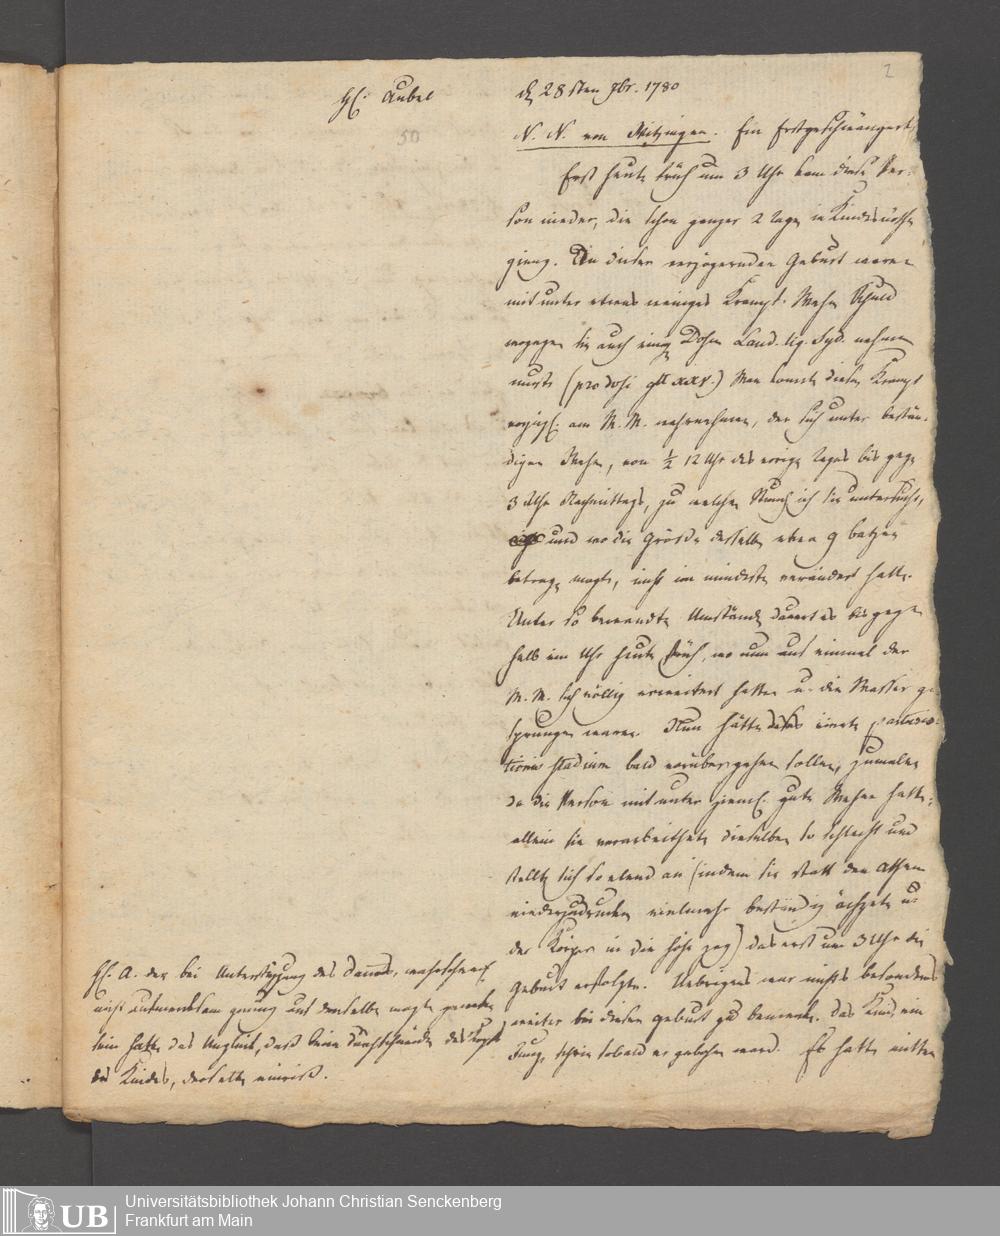 2
H: Aubel
50
d 28sten 7br. 1780
N. N. von Kitzingen. Ein Erstgeschwängert,
Erst heute früh um 3 Uhr kam diese Per-
son nieder, die schon ganzer 2 Tage in Kindsnöthe
gieng. An dieser verzögernden Geburt waren
mitunter etwas weniges Krampf-Wehe Schuld
wogegen sie auch einig Dosen Laud. liq. Syd. nehmen
muste (pro dosi gtt xxv.) Man konnte diesen Krampf
vorzügl. am M. M. wahrnehmen, der sich unter bestän-
digen Wehe, von ½ 12 Uhr des vorig Tages bis gege
3 Uhr Nachmittags, zu welcher Stund ich sie untersucht,
und wo die Grösse desselb eben 9 batzen
betrage mogte, nicht im mindeste verändert hatte.
Unter so bewandte Umständ dauert es bis gegen
halb ein Uhr heute früh, wo nun auf einmal der
M. M. sich völlig erweitert hatte u. die Wasser ge-
sprungen waren. Nun hätte dieses parturi-
tionis stadium bald vorübergehen sollen, zumalen
da die Person mitunter ziemf. gute Wehen hatte;
allein sie verarbeithete dieselben so schlecht und
stellte sich so elend an (indem sie statt den Athem
niederzudrucken vielmehr beständig ächzete u:
den Körper in die Höhe zog) das erst um 3 Uhr die
Geburt erfolgte. Uebrigens war nichts besonders
weiter bei dieser Geburt zu bemerke. Das Kind, ein
Jung, schrie sobald er gebohren ward. Es hatte mitten
H: A. der bei Unterstützung des Damms, wahrscheinl.
nicht aufmerksam genung auf denselbe mogte gewese
sein hatte das Unglück, daß beim Durchschneide des Kopfs
des Kindes, derselbe einriß.
Universitätsbibliothek Johann Christian Senckenberg
Frankfurt am Main
UB